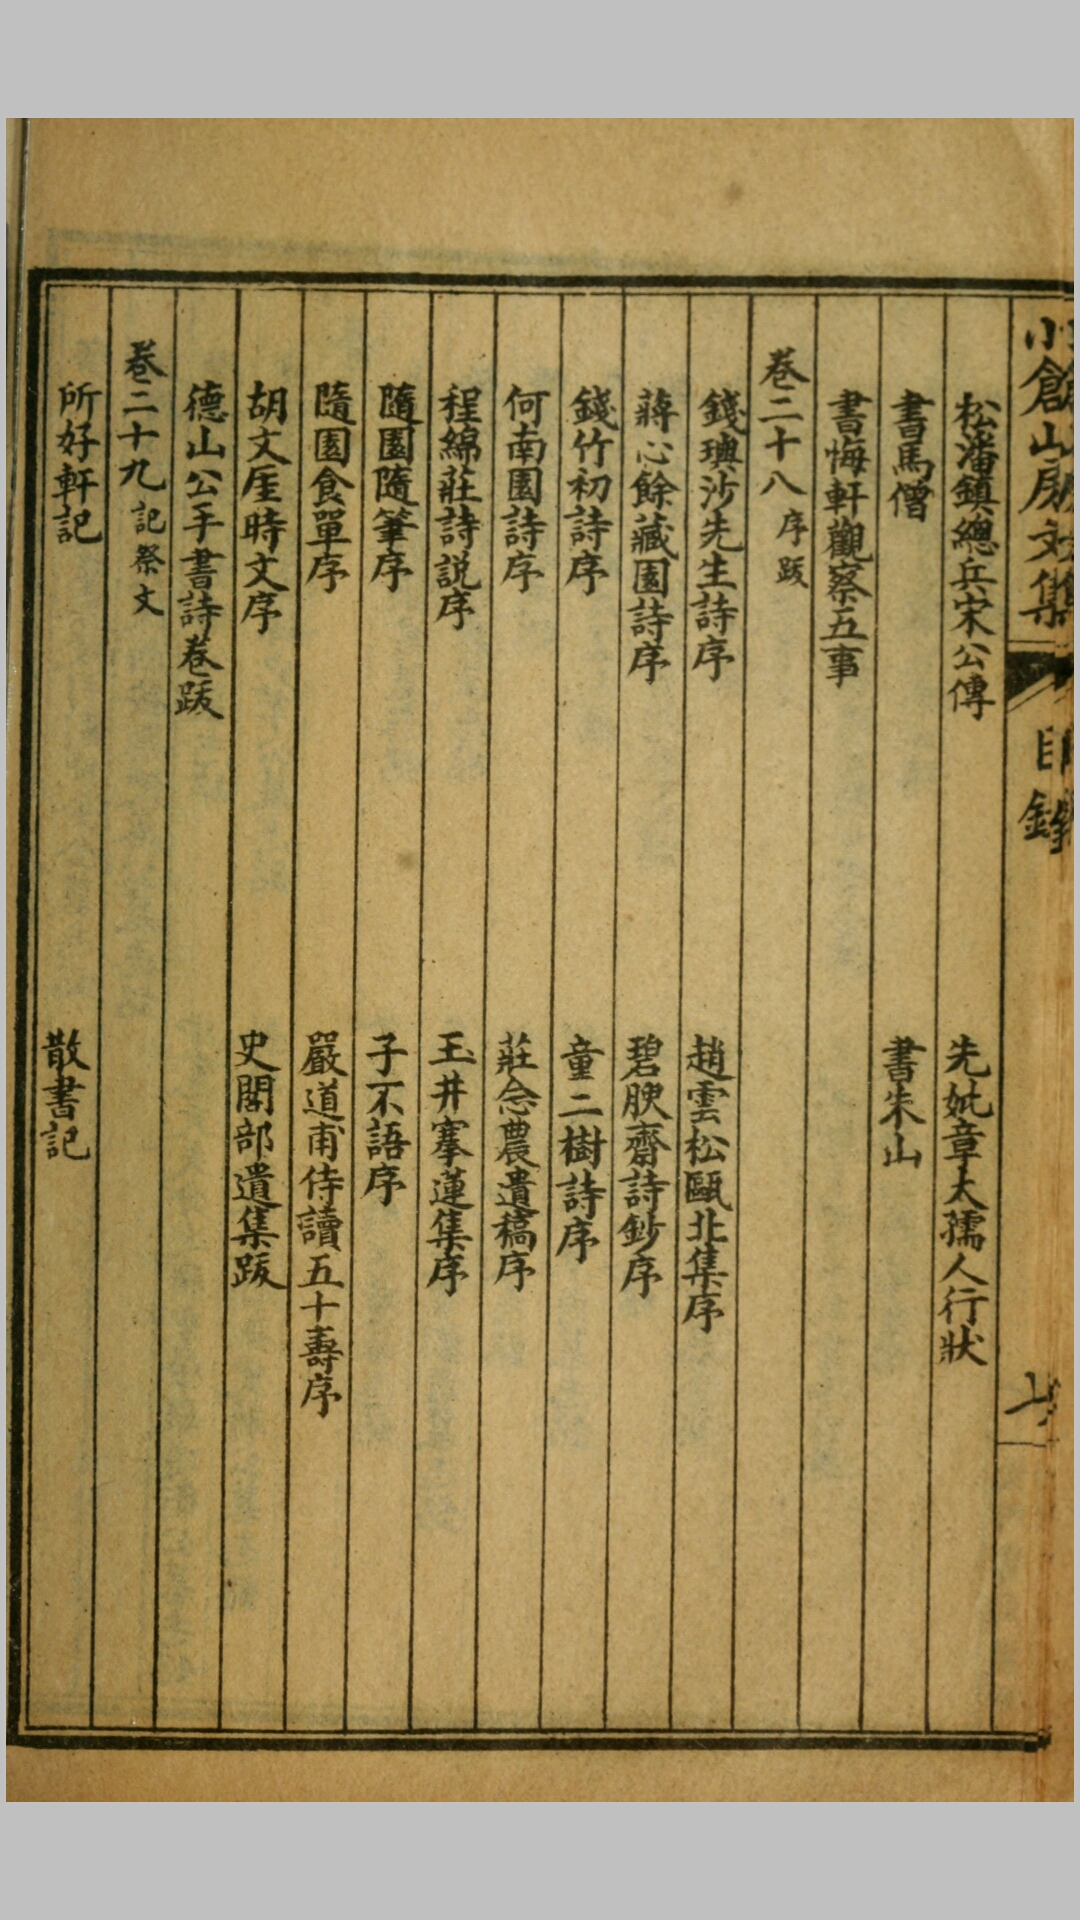 小倉山房文集
目錄
松潘鎮總兵宋公傳　先妣章太孺人行狀
書馬僧　書朱山
書悔軒觀察五事
卷二十八 序跋
錢璵沙先生詩序　趙雲松甌北集序
蔣心餘藏園詩序　碧腴齋詩鈔序
錢竹初詩序　童二樹詩序
何南園詩序　莊念農遺稿序
程綿莊詩說序　玉井搴蓮集序
隨園隨筆序　子不語序
隨園食單序　嚴道甫侍讀五十壽序
胡文厓時文序　史閣部遺集跋
德山公手書詩卷跋
卷二十九 記祭文
所好軒記　散書記